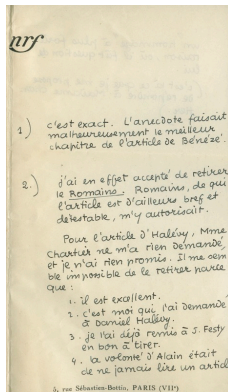 nrf
1) c'est exact. L'anecdote faisait
malheureusement le meilleur
chapitre de l'article de Bénézé.
2.) j'ai en effet accepté de retirer
le Romains. Romains, de qui
l'article est d'ailleurs bref et
détestable, m'y autorisait.
Pour l'article d'Halévy, Mme
Chartier ne m'a rien demandé,
et je n'ai rien promis. Il me sem
ble impossible de le retirer parce
que :
1. il est excellent.
2. c'est moi qui l'ai demandé
à Daniel Halévy.
3. je l'ai déjà remis à J. Festy
en bon à tirer.
4. la volonté d'Alain était
de ne jamais lire un articl
5, rue Sébastien-Bottin, PARIS (VIIe)